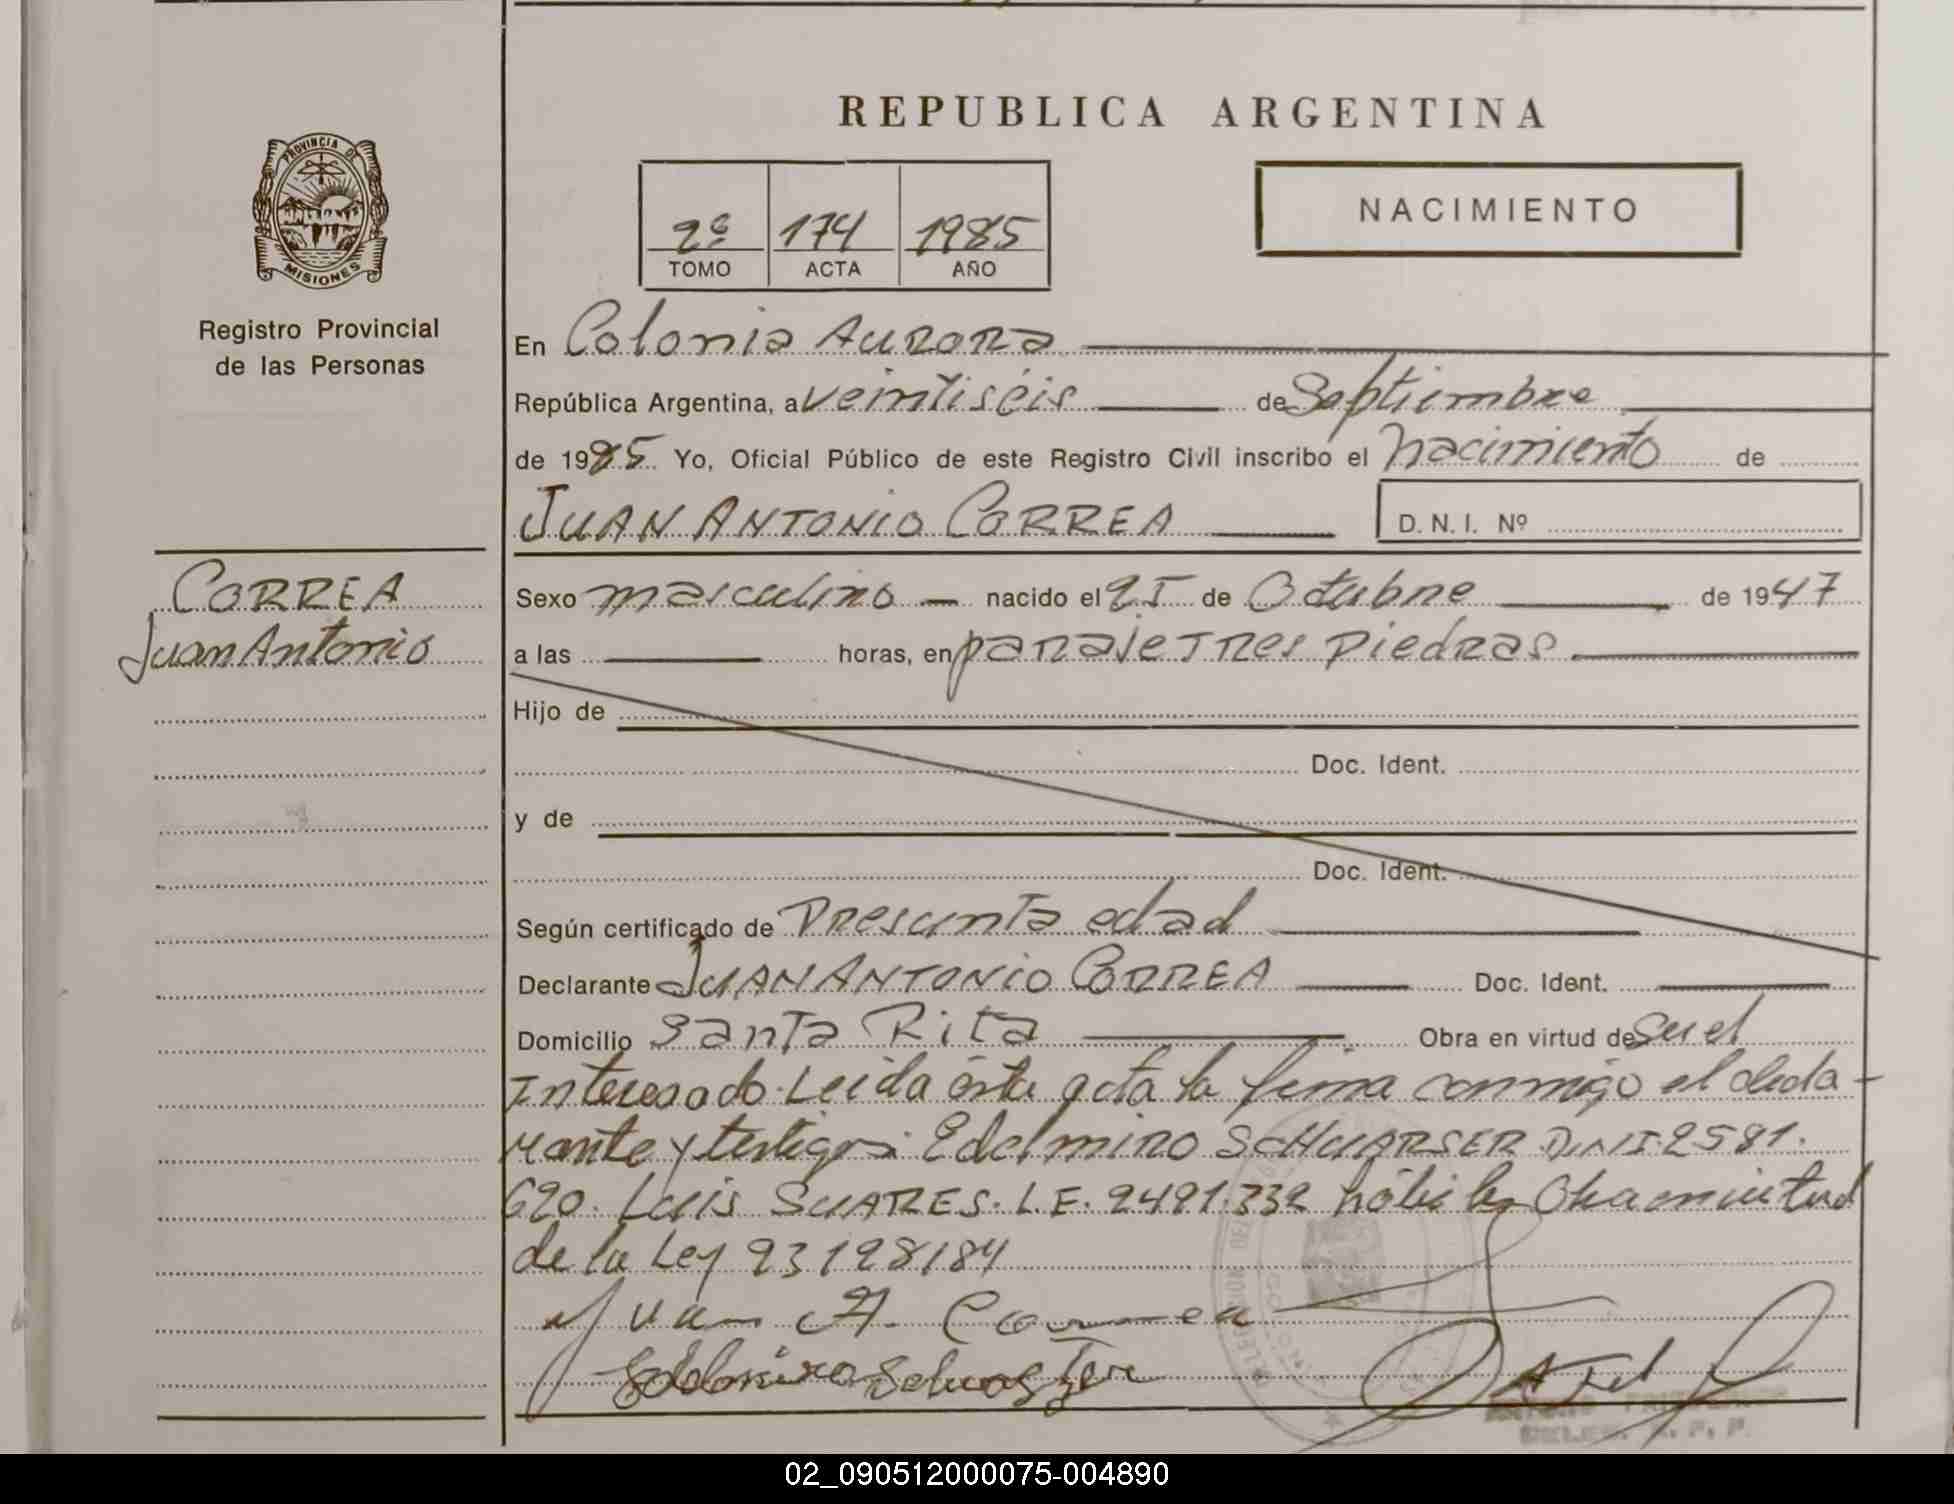 REPUBLICA ARGENTINA
PROVINCIA DE
MISIONES
Registro Provincial
de las Personas
2º 174 1985
TOMO ACTA AÑO
NACIMIENTO
En Colonia Aurora
República Argentina, a veintiséis de Septiembre
de 1985 Yo, Oficial Público de este Registro Civil inscribo el nacimiento de
JUAN ANTONIO CORREA
D. N. I. Nº
CORREA
Juan Antonio
Sexo masculino nacido el 25 de Octubre de 1947
a las horas, en paraje Tres Piedras
Hijo de
Doc. Ident.
y de
Doc. Ident.
Según certificado de Presunta edad
Declarante JUAN ANTONIO CORREA Doc. Ident.
Domicilio Santa Rita Obra en virtud de Ser el
Interesado. Leida ésta acta la firma conmigo el decla-
rante y testigos: Edelmiro SCHUARSER D.N.I. 2581.
620. Luis SUARES. L.E. 2491.332 hábiles Obra en virtud
de la Ley 23128/84
Juan A. Correa
DELEG. R. P. P.
02_090512000075-004890